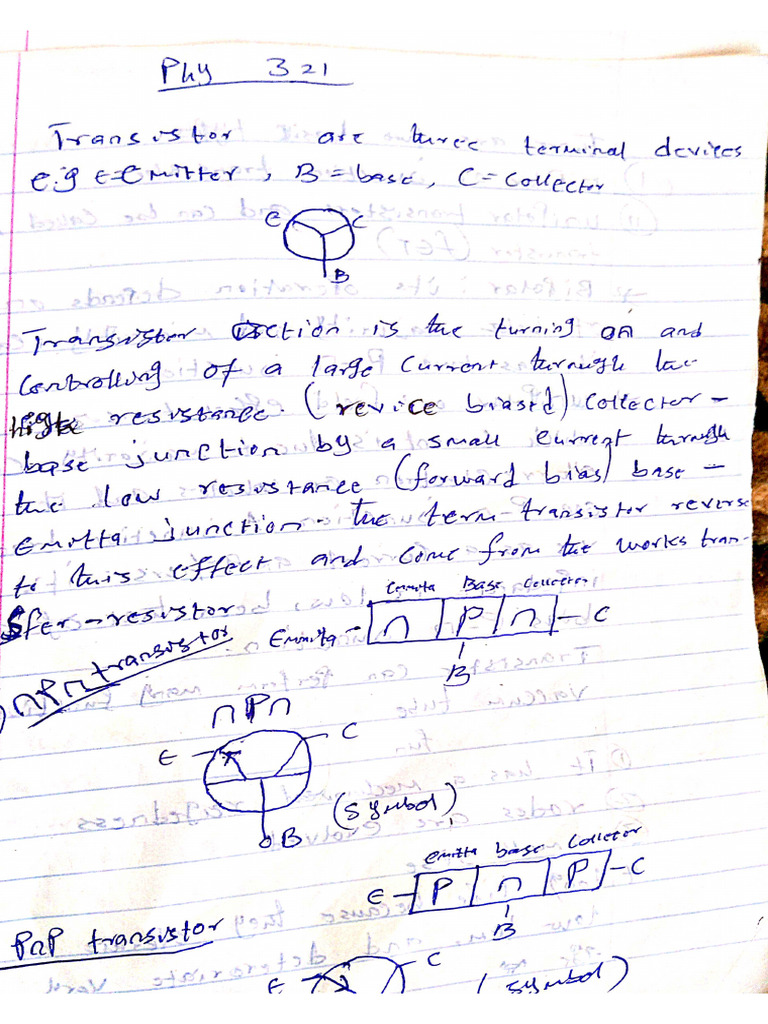 Phy 321
Transistor are three terminal devices
e.g E=Emitter, B=base, C=Collector
E C
B
Transistor action is the turning on and
controlling of a large current through the
high resistance. (revice biased) collector-
base junction by a small current through
the low resistance (forward bias) base-
emitta junction. the term-transistor reverse
to this effect and come from the works tran-
sfer-resistor
emmita Base collector
Emmita - n P n - C
B
nPn transistor
nPn
E C
(symbol)
B
emitta base Collector
E - P n P - C
B
PnP transistor
E C
(symbol)